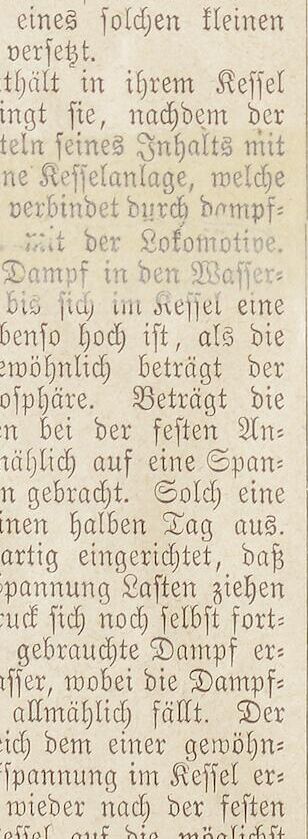 eines solchen kleinen
versetzt.
thält in ihrem Kessel
ingt sie, nachdem der
teln seines Inhalts mit
ne Kesselanlage, welche
verbindet durch dampf-
mit der Lokomotive.
Dampf in den Wasser-
bis sich im Kessel eine
benso hoch ist, als die
ewöhnlich beträgt der
osphäre. Beträgt die
en bei der festen An-
mählich auf eine Span-
n gebracht. Solch eine
inen halben Tag aus.
artig eingerichtet, daß
pannung Lasten ziehen
ruck sich noch selbst fort-
gebrauchte Dampf er-
asser, wobei die Dampf-
allmählich fällt. Der
eich dem einer gewöhn-
fspannung im Kessel er-
wieder nach der festen
essel auf die möglichst